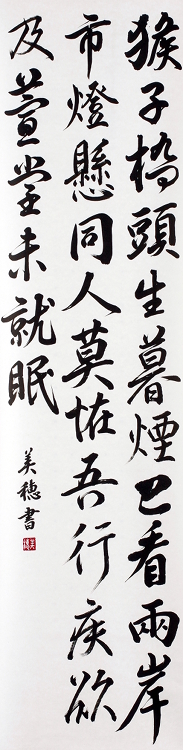 猴子橋頭生暮煙已看兩岸
市燈懸同人莫怪吾行疾欲
及萱堂未就眠
美穗書